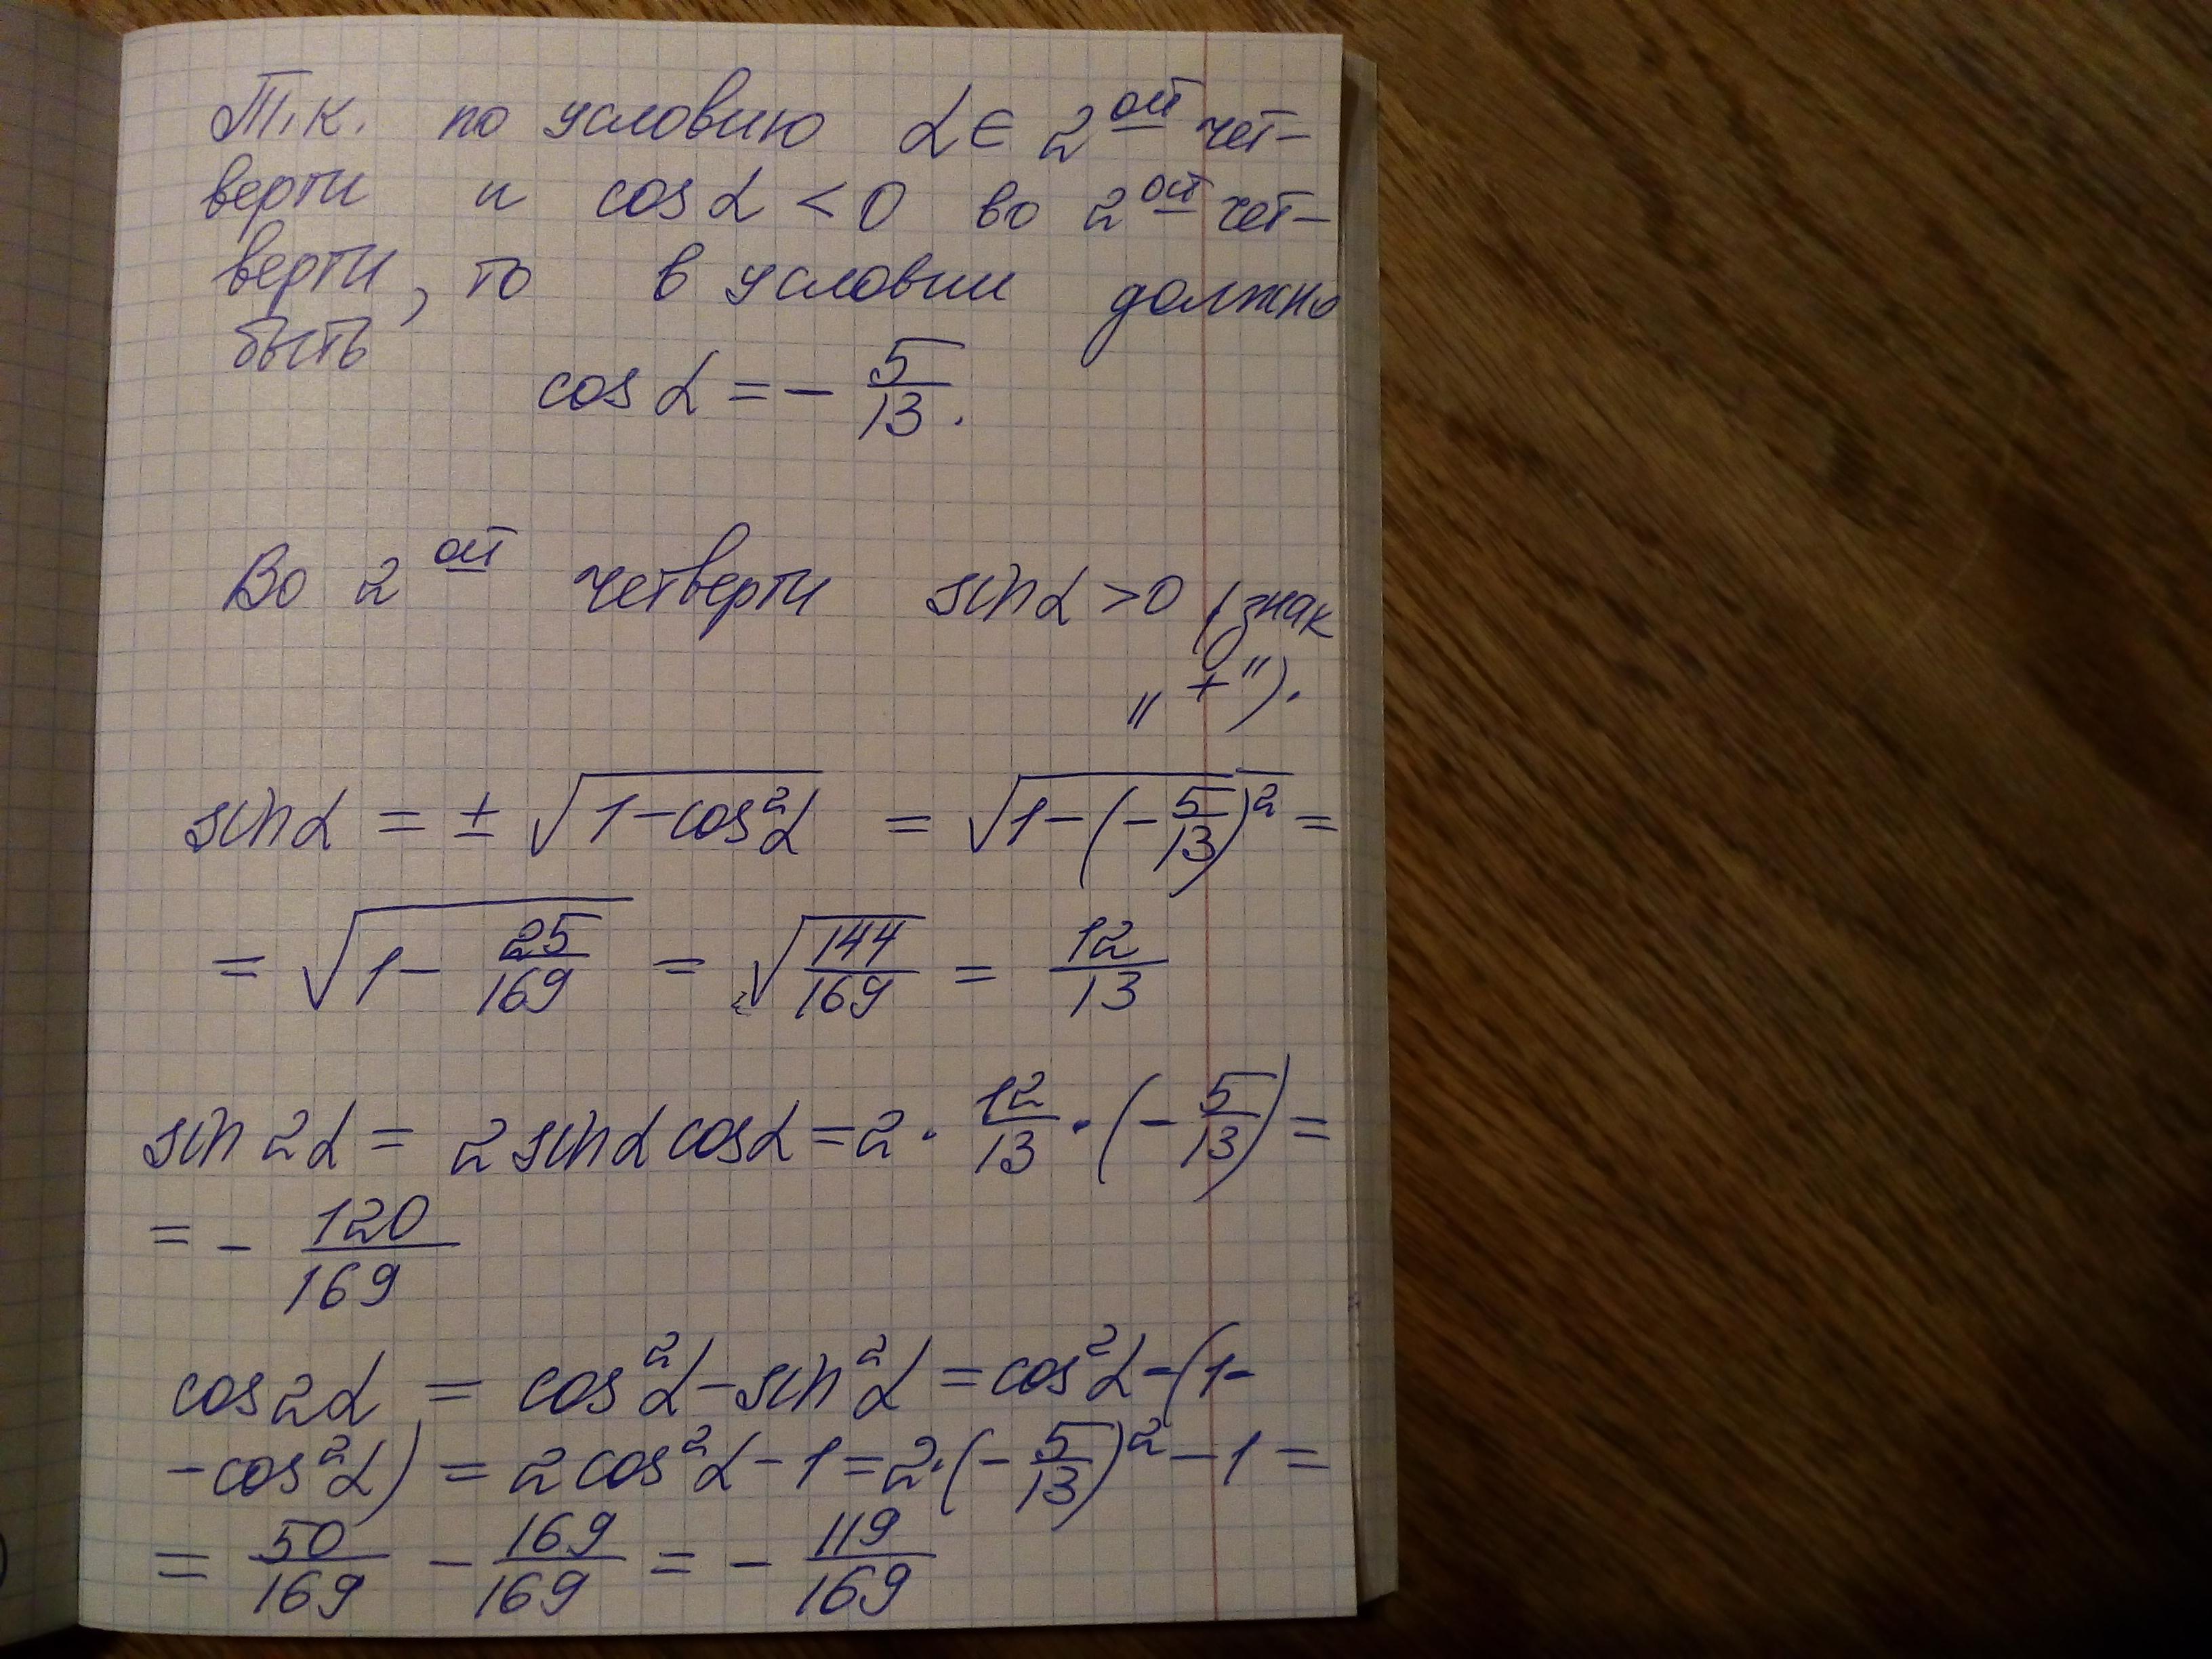 Т.к. по условию α ∈ 2ой чет-
верти и cos α < 0 во 2ой чет-
верти, то в условии должно
быть
cos α = - 5/13.
Во 2ой четверти sin α > 0 (знак
„+").
sin α = ± √(1-cos²α) = √(1-(-5/13)²) =
= √(1 - 25/169) = √(144/169) = 12/13
sin 2α = 2 sin α cos α = 2 · 12/13 · (-5/13) =
= - 120/169
cos 2α = cos²α - sin²α = cos²α - (1-
-cos²α) = 2 cos²α - 1 = 2·(-5/13)² - 1 =
= 50/169 - 169/169 = - 119/169